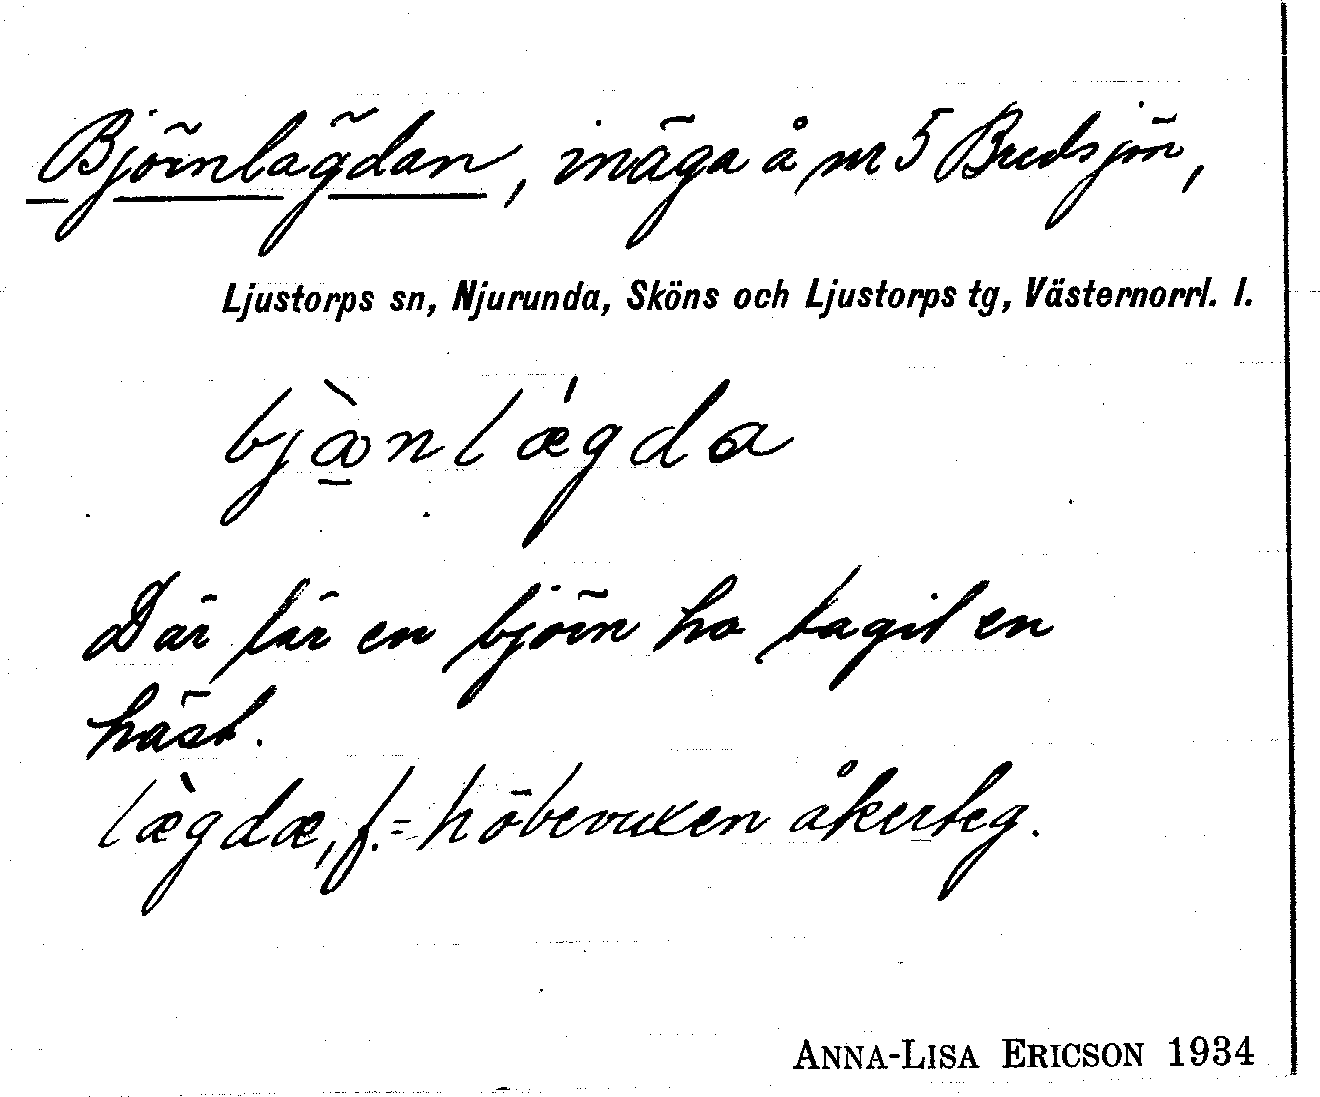 Björnlägdan, inäga å nr 5 Bredsjön,
Ljustorps sn, Njurunda, Sköns och Ljustorps tg, Västernorrl. l.
bjœ̠̀nlǽgda
Där lär en björn ha tagit en
häst.
læ̀gdæ, f. = höbevuxen åkerteg.
ANNA-LISA ERICSON 1934